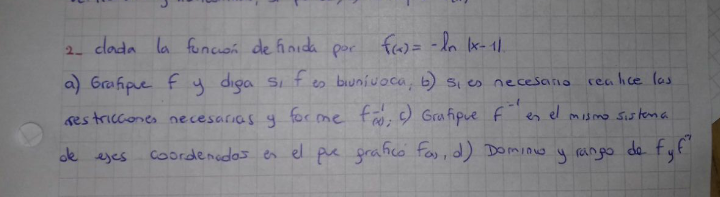 2- dada la función definida por f(x) = -ln |x-1|
a) Grafique f y diga si f es biunívoca, b) si es necesario realice las
restricciones necesarias y forme f⁻¹(x); c) Grafique f⁻¹ en el mismo sistema
de ejes coordenados en el que graficó f(x), d) Dominio y rango de f y f⁻¹